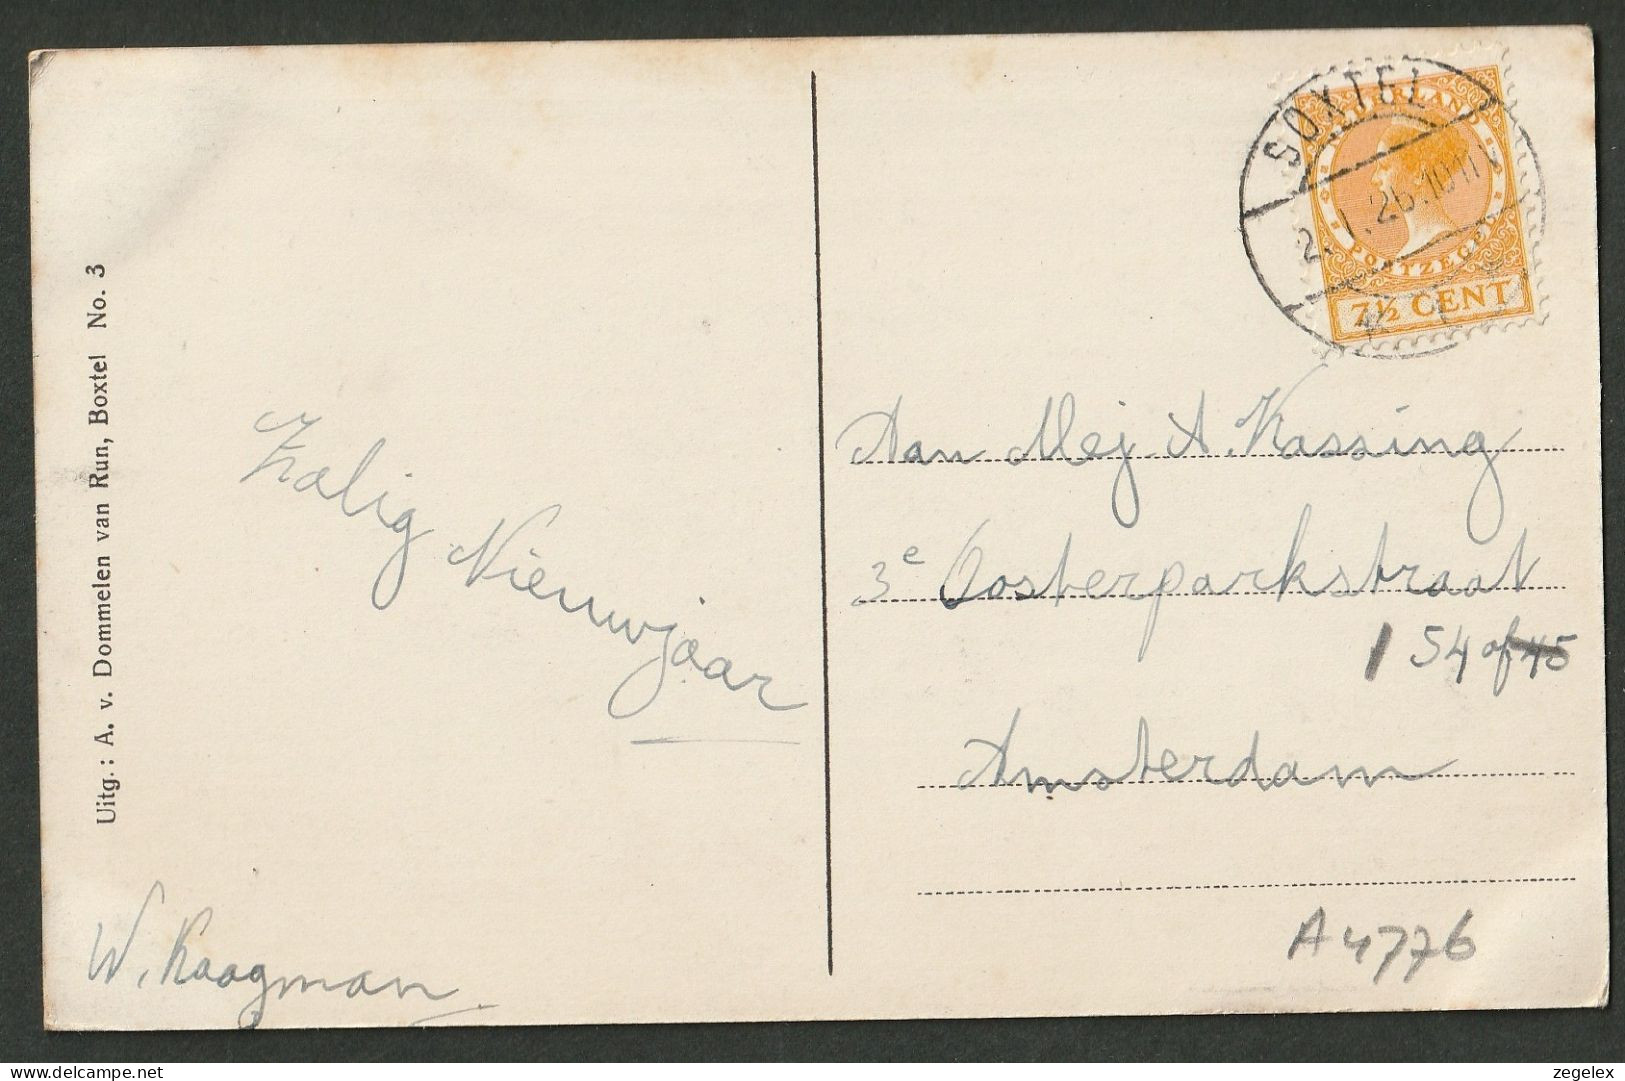 Uitg.: A. v. Dommelen van Run, Boxtel No. 3
Zalig Nieuwjaar
W. Kaagman
BOXTEL
2. 1. 26. 10
NEDERLAND
POSTZEGEL
7½ CENT
Aan Mej. A. Kassing
3e Oosterparkstraat
154 of 45
Amsterdam
A4776
www.delcampe.net
zegelex